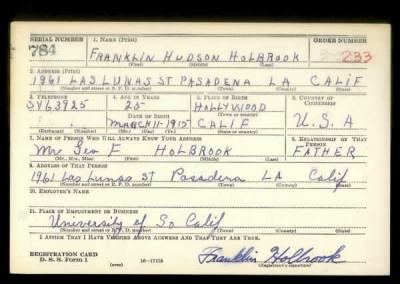 SERIAL NUMBER 1. NAME (Print) ORDER NUMBER
784 FRANKLIN HUDSON HOLBROOK 233
(First) (Middle) (Last)
2. ADDRESS (Print)
1961 LAS LUNAS ST PASADENA LA CALIF
(Number and street or R. F. D. number) (Town) (County) (State)
3. TELEPHONE 4. AGE IN YEARS 5. PLACE OF BIRTH 6. COUNTRY OF CITIZENSHIP
SY63925 25 HOLLYWOOD
DATE OF BIRTH (Town or county)
MARCH 11-1915 CALIF U.S.A
(Exchange) (Number) (Mo.) (Day) (Yr.) (State or country)
7. NAME OF PERSON WHO WILL ALWAYS KNOW YOUR ADDRESS 8. RELATIONSHIP OF THAT PERSON
Mr Geo F HOLBROOK FATHER
(Mr., Mrs., Miss) (First) (Middle) (Last)
9. ADDRESS OF THAT PERSON
1961 Las Lunas St Pasadena LA Calif
(Number and street or R. F. D. number) (Town) (County) (State)
10. EMPLOYER'S NAME
11. PLACE OF EMPLOYMENT OR BUSINESS
University of So Calif
(Number and street or R. F. D. number) (Town) (County) (State)
I AFFIRM THAT I HAVE VERIFIED ABOVE ANSWERS AND THAT THEY ARE TRUE.
REGISTRATION CARD
D. S. S. Form 1 (over) 16-17105 Franklin Holbrook
(Registrant's signature)